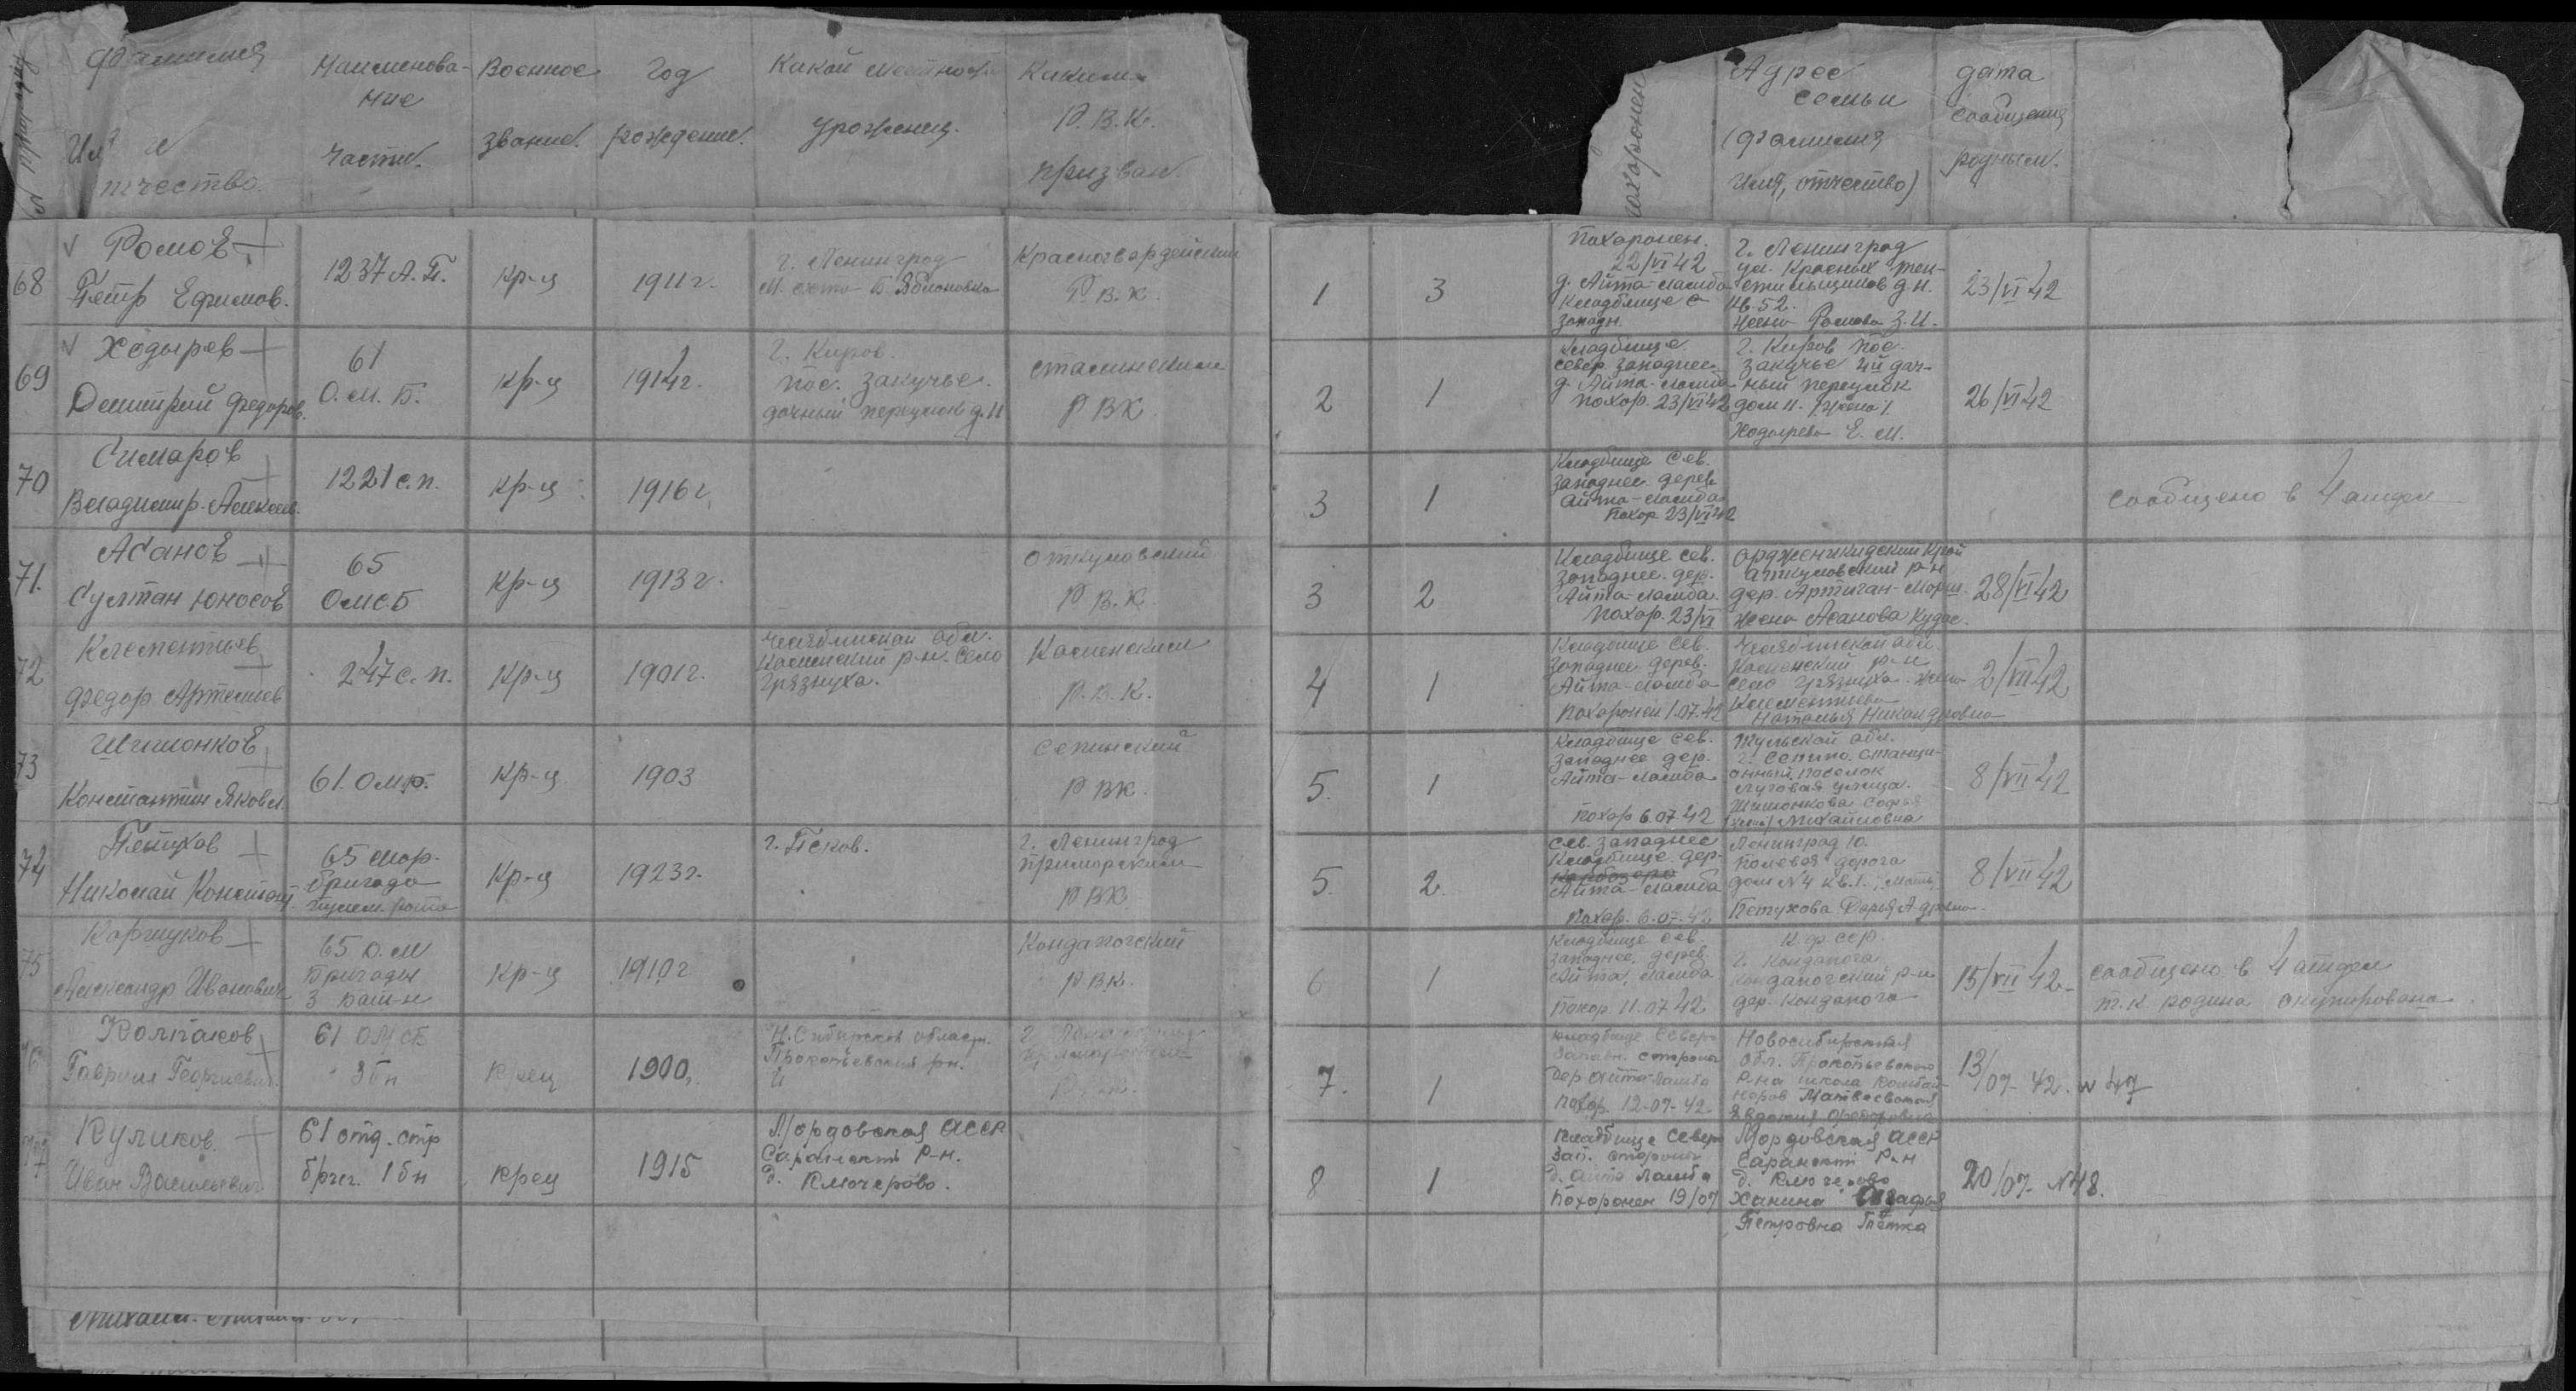 Фамилия
Имя и
отчество.
Наименова-
ние
части.
Военное
звание.
Год
рождения.
Какой местности
урожениц.
Каким
Р.В.К.
призван.
похоронен
Адрес
семьи
(фамилия
имя, отчество)
дата
сообщения
родным.
68
Ромов
Петр Ефимов.
1237 А.П.
Кр-ц
1911 г.
г. Ленинград
Красногвардейский
Р.В.К.
1
3
Похоронен.
22/VI 42
д. Айта-ламба
Кладбище с
западн.
г. Ленинград
ул. Красных тек-
стильщиков д. 11.
кв. 52.
жена Ромова З.И.
23/VI 42
69
Ходырев
Дмитрий Федоров.
61
О.М.Б.
Кр-ц
1914 г.
г. Киров.
пос. Закучье.
дачный переулок д. 11
Сталинским
РВК
2
1
Кладбище
север. западнее
д. Айта-ламба
похор. 23/VI 42
г. Киров пос.
Закучье 4й дач-
ный переулок
дом 11. /жена/
Ходырева Е. М.
26/VI 42
70
Симаров
Владимир Алексан.
1221 с.п.
Кр-ц
1916 г.
3
1
Кладбище Сев.
западнее дерев.
Айта-ламба
похор 23/VI 42
сообщено в 4 отдел
71.
Асанов
Султан Юносов
65
ОМСБ
Кр-ц
1913 г.
Откуловский
Р.В.К.
3
2
Кладбище сев.
западнее дер.
Айта-ламба.
Похор. 23/VI
Орджоникидский край
Аткуловский р-н
дер. Артиган-
жена Асанова Кудас.
28/VI 42
72
Клементьев
Федор Артемьев
247 с.п.
Кр-ц
1901 г.
Челябинская обл.
Каменский р-н. село
Грязнуха.
Каменским
Р.В.К.
4
1
Кладбище Сев.
западнее дерев.
Айта-ламба
Похоронен 1.07.42
Челябинская обл.
Каменский р-н
село Грязнуха. жена
Клементьева
Наталья Никандровна
2/VII 42
73
Шимонков
Константин Яковл.
61. омбр.
Кр-ц
1903
Сепинский
РВК.
5.
1
Кладбище Сев.
западнее дер.
Айта-ламба
похор 6.07.42
Тульской обл.
г. Сепино. Станци-
онный поселок
Луговая улица.
Шимонкова Софья
(жена) Михайловна
8/VII 42
74
Петухов
Николай Констант.
65 мор.
бригада
пулем. рота
Кр-ц
1923 г.
г. Псков.
г. Ленинград
Приморским
РВК
5.
2.
Сев. западнее
Кладбище дер.
Айта-ламба
Похор. 6.07.42
Ленинград 10.
Полевая дорога
дом № 4 кв. 1. мать
Петухова Дарья Адриян.
8/VII 42
75
Коршуков
Александр Иванович
65 о.м
бригады
3 бат-н
Кр-ц
1910 г
Кондапогский
РВК.
6
1
Кладбище Сев.
западнее, дерев.
Айта, ламба
Похор. 11.07.42
К.ф сср.
г. Кондапога
Кондапогский р-н
дер. Кондапога
15/VII 42
сообщено в 4 отдел
т.к. родина окупирована.
76
Колпаков
Гавриил Георгиевич.
61 ОМСБ
3 бн
Кр-ец
1900 г.
Н. Сибирской области.
Прокопьевский рн.
7.
1
кладбище Северо
Западн. сторона
Дер Айта-Ламба
похор. 12-07-42
Новосибирская
обл. Прокопьевского
Р-на школа Комбай-
неров Матвеевская
Евдокия Федоровна
13/07-42. № 47
77
Куликов
Иван Васильевич
61 отд. стр
бриг. 1 бн
Крец
1915
Мордовская АССР
Саранский Р-н.
д. Ключерово.
8
1
Кладбище Северо
Зап. стороны
д. Айта Ламба
Похоронен 19/07
Мордовская АССР
Саранский Р-н
д. Ключерово
Ханина Агафья
Петровна Тётка
20/07- № 48.